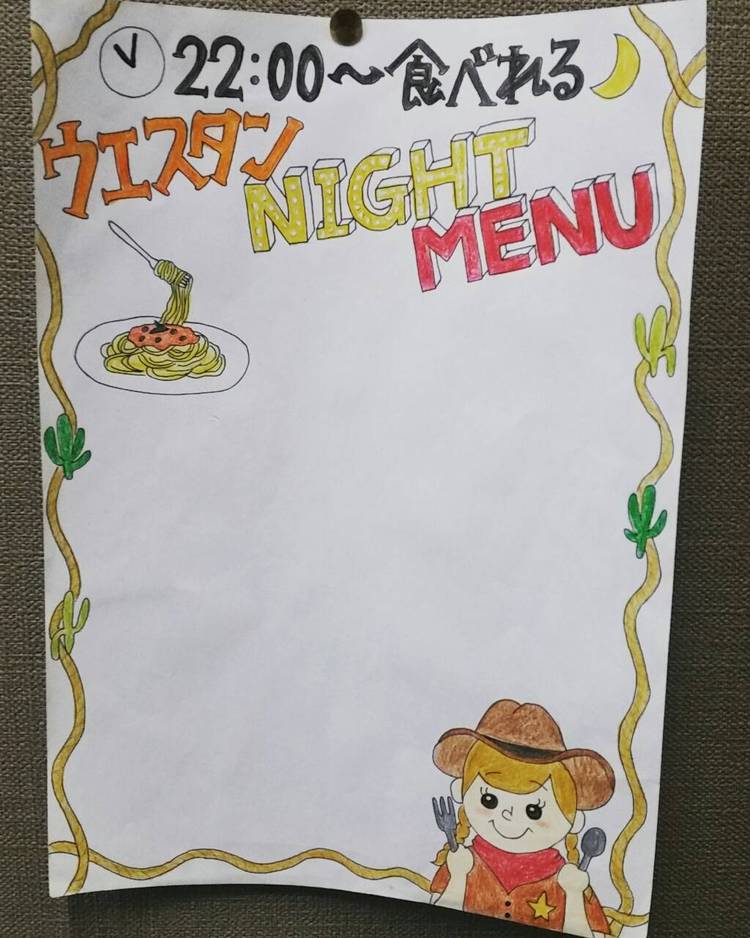 22:00～食べれる
ウエスタン
NIGHT
MENU